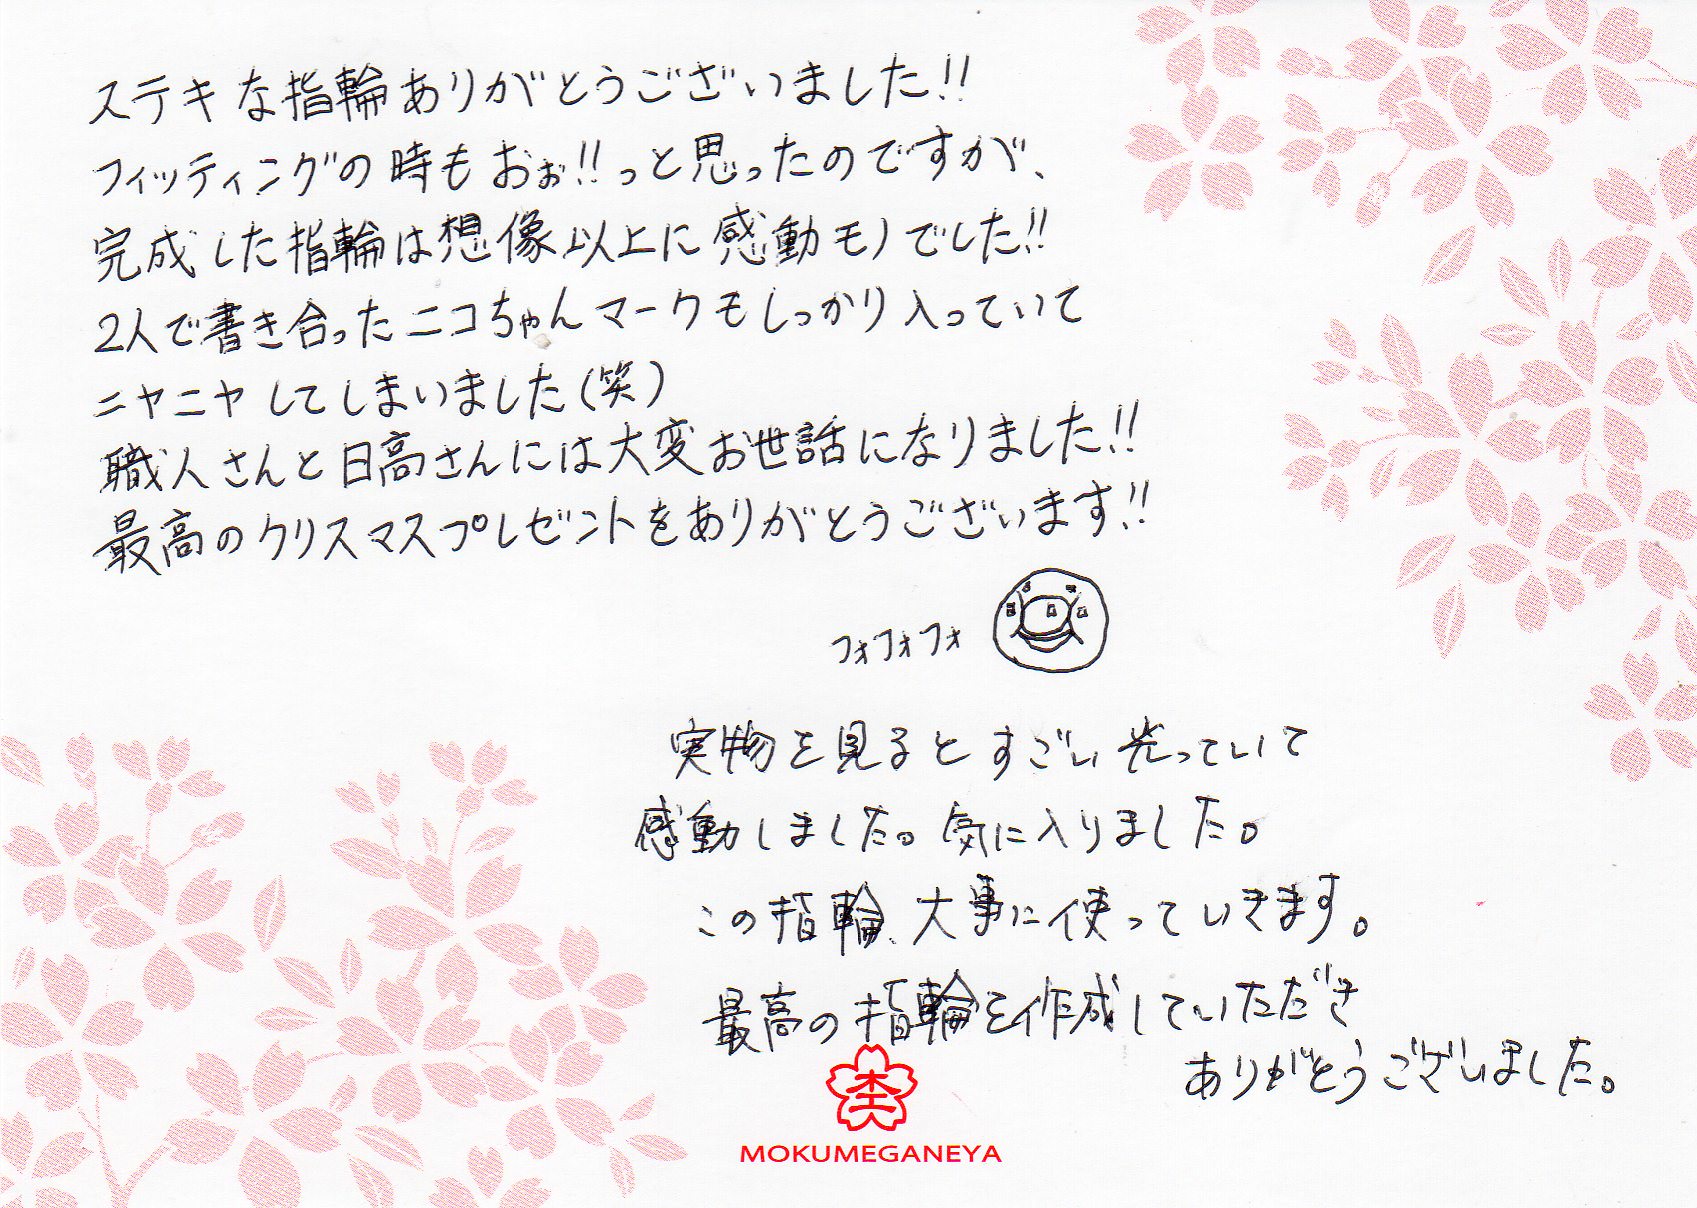 ステキな指輪ありがとうございました!!
フィッティングの時もおぉ!!っと思ったのですが、
完成した指輪は想像以上に感動モノでした!!
2人で書き合ったニコちゃんマークもしっかり入っていて
ニヤニヤしてしまいました(笑)
職人さんと日高さんには大変お世話になりました!!
最高のクリスマスプレゼントをありがとうございます!!
フォフォフォ
実物を見るとすごい光っていて
感動しました。気に入りました。
この指輪、大事に使っていきます。
最高の指輪を作成していただき
ありがとうございました。
MOKUMEGANEYA